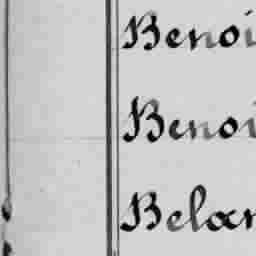 Benoi
Benoi
Belan